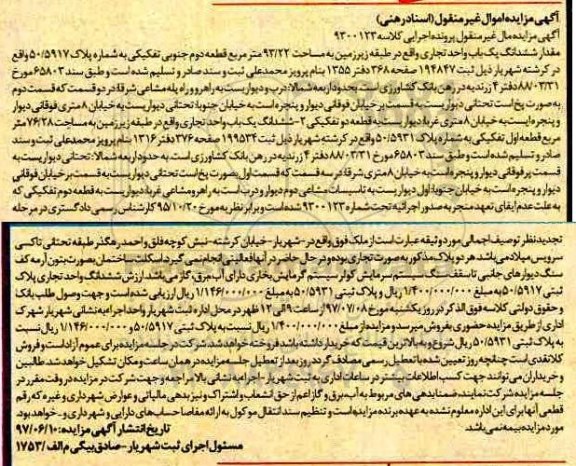 آگهی مزایده اموال غیر منقول (اسناد رهنی)
آگهی مزایده مال غیر منقول پرونده اجرایی کلاسه ۹۳۰۰۱۲۳
مقدار ششدانگ یک باب واحد تجاری واقع در طبقه زیرزمین به مساحت ۹۳/۲۲ متر مربع قطعه دوم جنوبی تفکیکی به شماره پلاک ۵۰/۵۹۱۷ واقع
در کرشته شهریار ذیل ثبت ۱۹۴۸۴۷ صفحه ۳۶۸ دفتر ۱۳۵۵ بنام پرویز محمدعلی ثبت و سند صادر و تسلیم شده است و طبق سند ۶۵۸۰۳ مورخ
۸۸/۰۳/۳۱ دفتر ۴ رزندیه در رهن بانک کشاورزی است. بحدود اربعه شمالا: درب و دیواریست به راهرو و راه پله مشاعی شرقا در دو قسمت که قسمت دوم
به صورت پخ است تحتانی دیواریست به قسمت پر خیابان فوقانی دیوار و پنجره است به خیابان جنوبا: تحتانی دیواریست به خیابان ۸ متری فوقانی دیوار
و پنجره ایست به خیابان ۸ متری غربا: دیواریست به قطعه دو تفکیکی ۲-ششدانگ یک باب واحد تجاری واقع در طبقه زیرزمین به مساحت ۷۶/۲۸ متر
مربع قطعه اول تفکیکی به شماره پلاک ۵۰/۵۹۳۱ واقع در کرشته شهریار ذیل ثبت ۱۹۹۵۳۴ صفحه ۳۷۶ دفتر ۱۳۱۶ بنام پرویز محمدعلی ثبت و سند
صادر و تسلیم شده است و طبق سند ۶۵۸۰۳ مورخ ۸۸/۰۳/۳۱ دفتر ۴ رزندیه در رهن بانک کشاورزی است. به حدود اربعه شمالا: تحتانی دیواریست به
قسمت پر فوقانی دیوار و پنجره است به خیابان ۸ متری شرقا: در سه قسمت که قسمت اول صورت پخ است تحتانی دیواریست به قسمت پر خیابان فوقانی
دیوار و پنجره است به خیابان جنوبا: اول دیواریست به تاسیسات مشاعی دوم دیوار و درب است به راهرو مشاعی غربا: دیواریست به قطعه دوم تفکیکی که
به علت عدم ایفای تعهد منجر به صدور اجرائیه تحت شماره ۹۳۰۰۱۲۳ شده است و برابر نظریه مورخ ۹۵/۱۰/۲۰ کارشناس رسمی دادگستری در مرحله
تجدیدنظر توصیف اجمالی مورد وثیقه عبارت است از ملک فوق واقع در-شهریار-خیابان کرشته-نبش کوچه فلق واحمد رهگذر طبقه تحتانی تاکسی
سرویس میلاد می باشد هر دو پلاک مذکور به صورت تجاری بوده و در حال حاضر در آنها فعالیتی انجام نمی گیرد اسکلت ساختمان بصورت بتون آرمه کف
سنگ دیوارهای جانبی تا سقف سنگ سیستم سرمایش کولر سیستم گرمایش بخاری دارای آب، برق، گاز می باشد ارزش ششدانگ واحد تجاری پلاک
ثبتی ۵۰/۵۹۱۷ به مبلغ ۱/۴۰۰/۰۰۰/۰۰۰ ریال و پلاک ثبتی ۵۰/۵۹۳۱ به مبلغ ۱/۱۴۶/۰۰۰/۰۰۰ ریال ارزیابی شده است و جهت وصول طلب بانک
و حقوق دولتی کلاسه فوق الذکر در روز یکشنبه مورخ ۹۷/۰۷/۰۸ از ساعت ۹ الی ۱۲ ظهر در محل اداره ثبت شهریار واحد اجرا به نشانی شهریار شهرک
اداری از طریق مزایده حضوری بفروش میرسد و مزایده از مبلغ ۱/۴۰۰/۰۰۰/۰۰۰ ریال نسبت به پلاک ثبتی ۵۰/۵۹۱۷ و ۱/۱۴۶/۰۰۰/۰۰۰ ریال نسبت
به پلاک ثبتی ۵۰/۵۹۳۱ ریال شروع و به بالاترین قیمت که خریدار داشته باشد فروخته خواهد شد. شرکت در جلسه مزایده برای عموم آزاد است و فروش
کلا نقدی است چنانچه روز تعیین شده با تعطیل رسمی مصادف گردد روز بعد از تعطیل جلسه مزایده در همان ساعت و مکان تشکیل خواهد شد. طالبین
و خریداران می توانند جهت کسب اطلاعات بیشتر در ساعات اداری به ثبت شهریار-اجرا به نشانی بالا مراجعه و جهت شرکت در مزایده در وقت مقرر در
جلسه مزایده شرکت نمایند. ضمنا بدهی های مربوط به آب، برق و گاز اعم از حق انشعاب و اشتراک و نیز بدهی مالیاتی و عوارض شهرداری و غیره که رقم
قطعی آنها برای این اداره معلوم نشده به عهده برنده مزایده است و تنظیم سند انتقال موکول به ارائه مفاصا حساب های دارایی و شهرداری و.. خواهد بود.
مورد مزایده بیمه نمی باشد.
تاریخ انتشار آگهی مزایده: ۹۷/۰۶/۱۰
مسئول اجرای ثبت شهریار-صادق بیگی م الف/۱۷۵۳